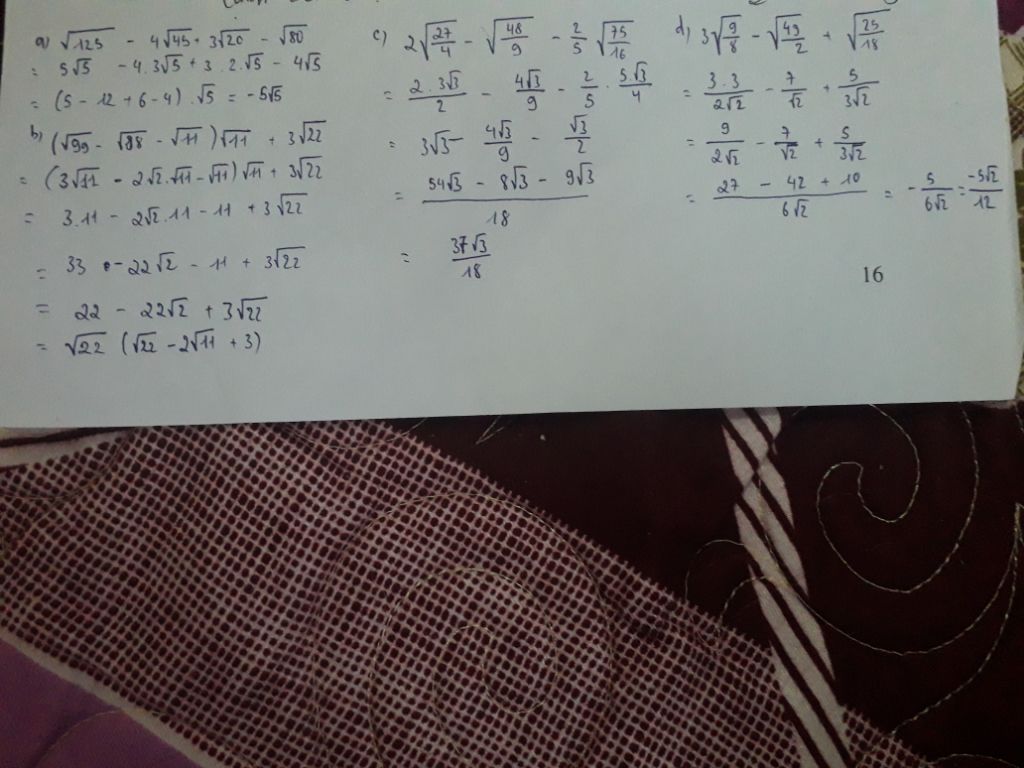 a) √125 - 4√45 + 3√20 - √80
= 5√5 - 4.3√5 + 3.2.√5 - 4√5
= (5 - 12 + 6 - 4).√5 = -5√5
b) (√99 - √88 - √11)√11 + 3√22
= (3√11 - 2√2.√11 - √11)√11 + 3√22
= 3.11 - 2√2.11 - 11 + 3√22
= 33 - 22√2 - 11 + 3√22
= 22 - 22√2 + 3√22
= √22 (√22 - 2√11 + 3)
c) 2√(27/4) - √(48/9) - 2/5 √(75/16)
= 2.3√3/2 - 4√3/9 - 2/5 . 5.√3/4
= 3√3 - 4√3/9 - √3/2
= (54√3 - 8√3 - 9√3)/18
= 37√3/18
d) 3√(9/8) - √(49/2) + √(25/18)
= 3.3/2√2 - 7/√2 + 5/3√2
= 9/2√2 - 7/√2 + 5/3√2
= (27 - 42 + 10)/6√2 = -5/6√2 = -5√2/12
16